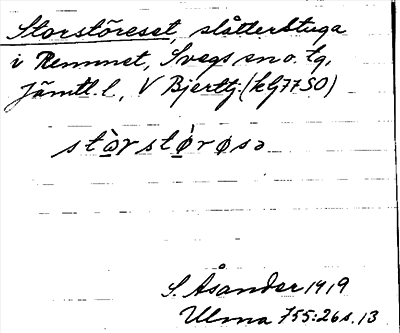 Storstöreset, slåtterstuga
i Remmet, Svegs sn o. tg,
Jämtl. l., V Bjerttj (kG7750)
stòrstø̀røsə
S. Åsander 1919
Ulma 755:26 s. 13